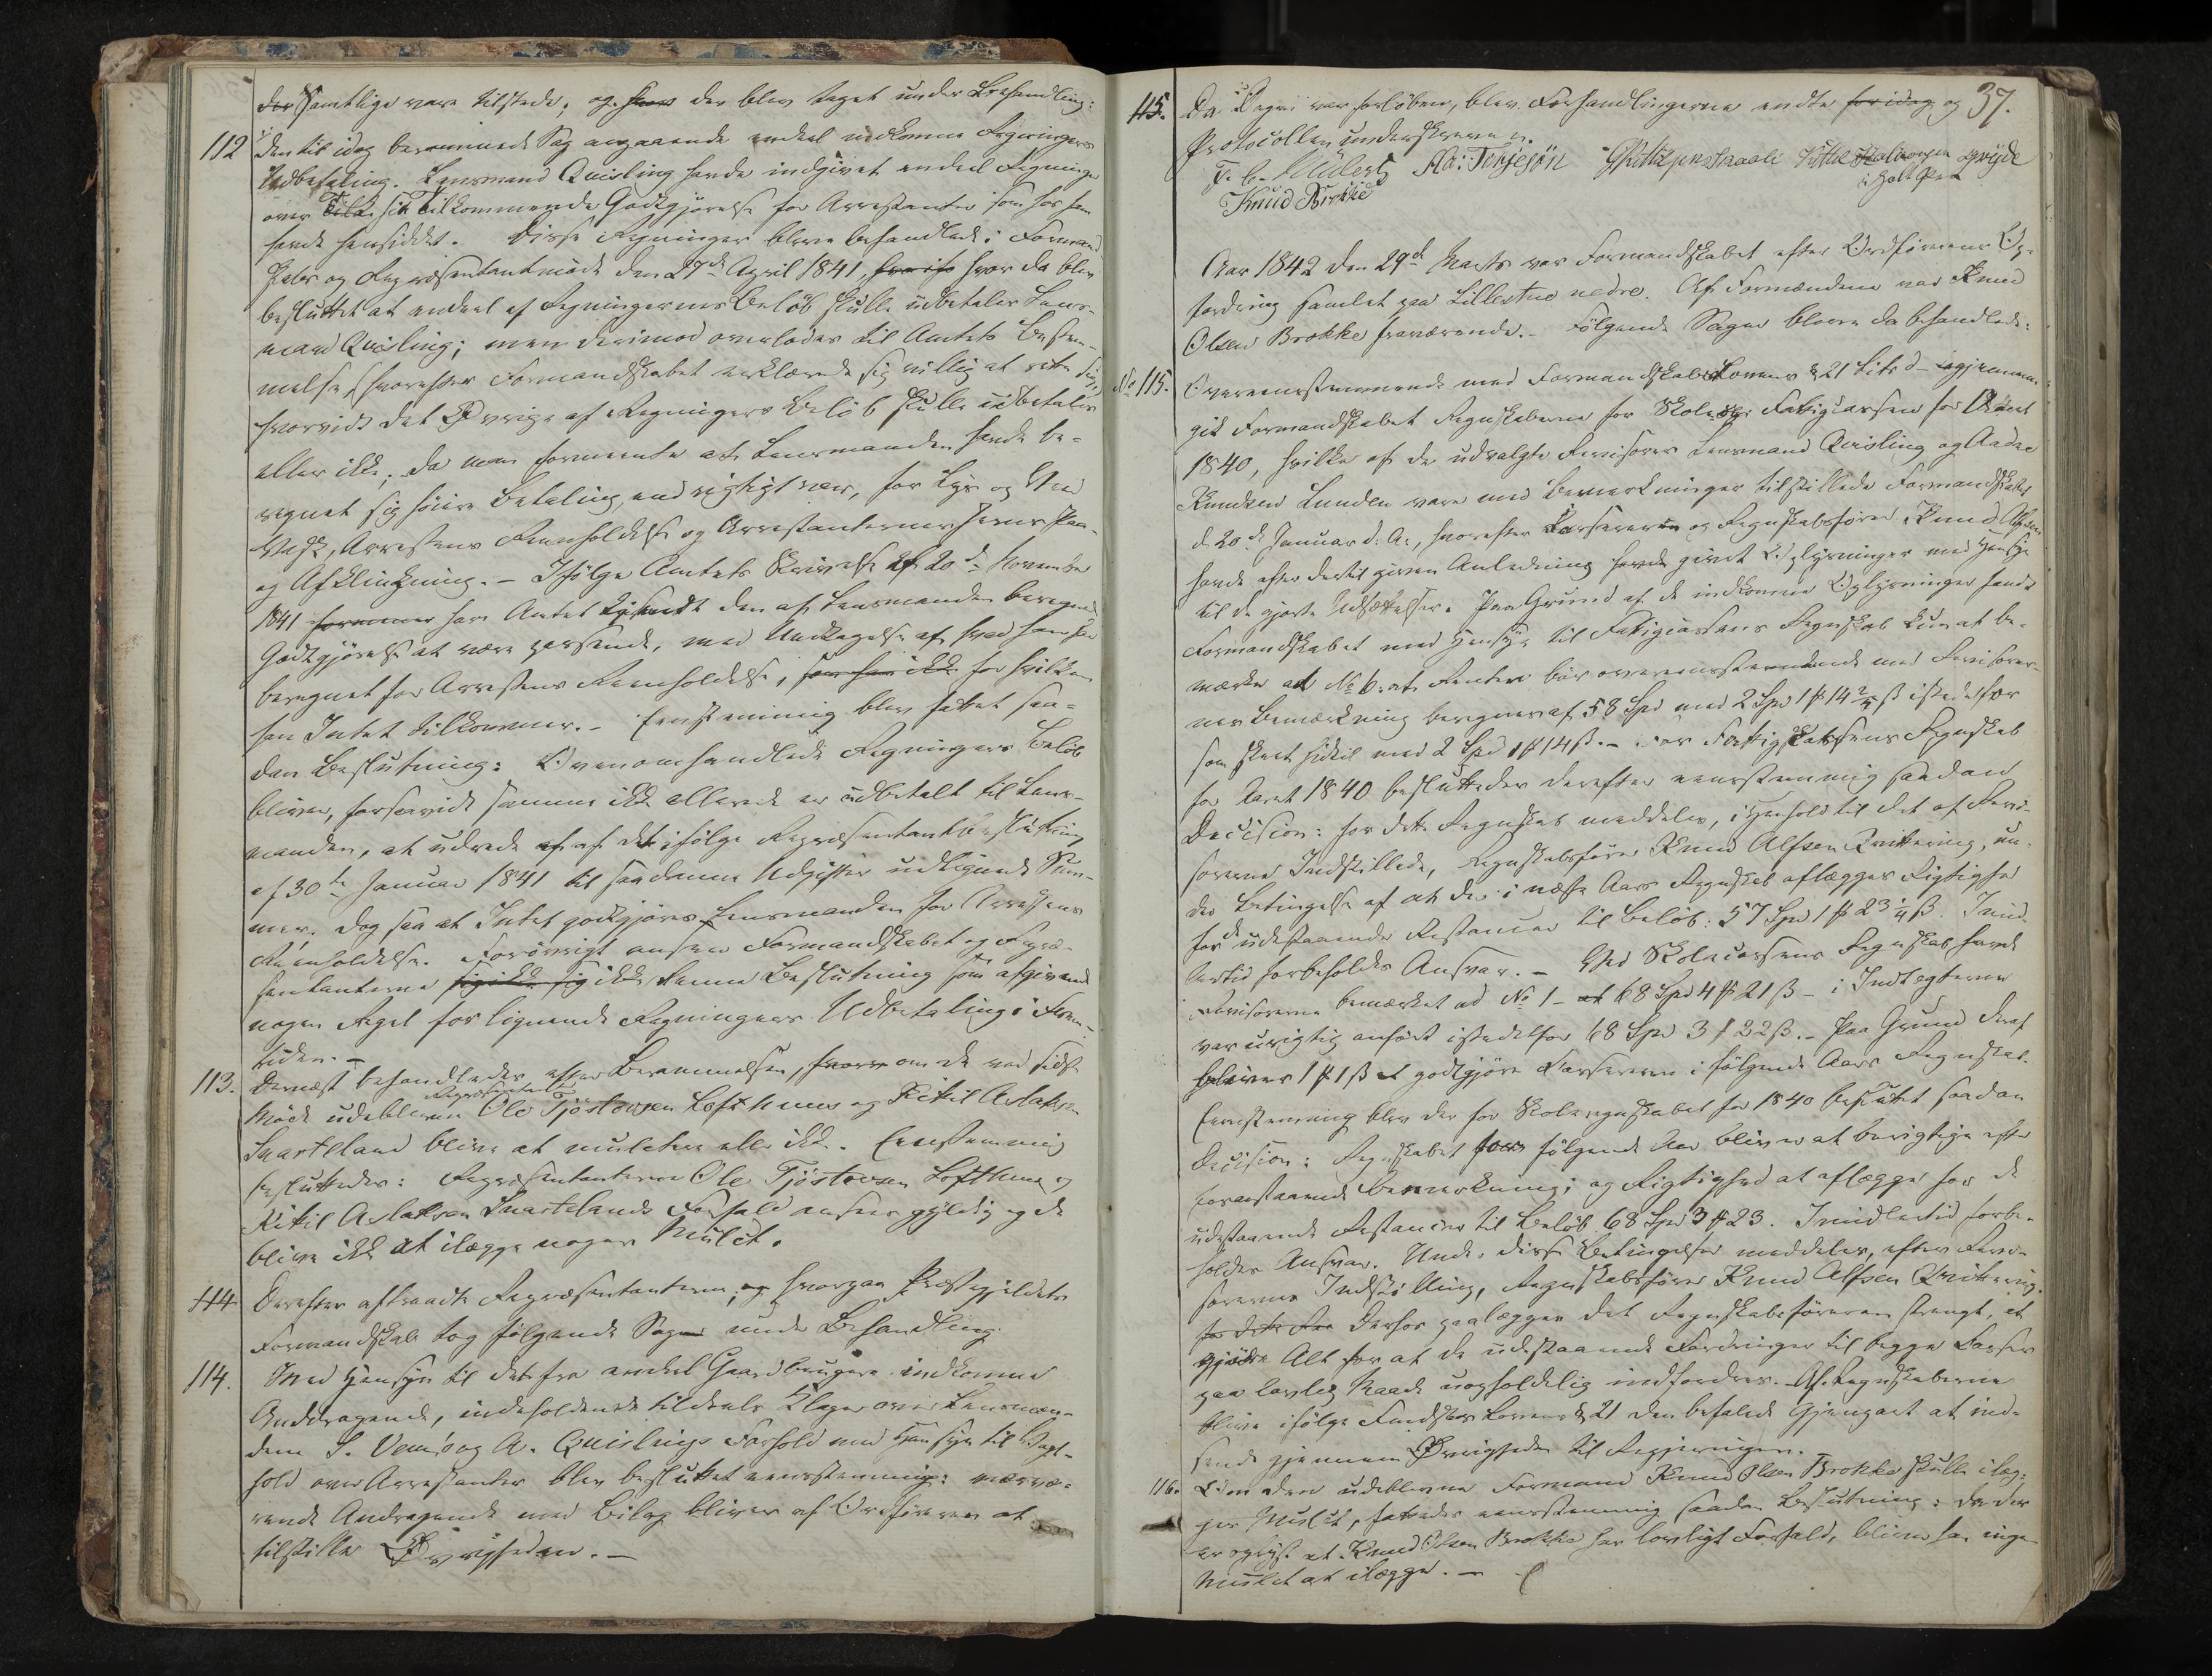 der Samtlige vare tilstede, og hvor der blev taget under Behandling:
112 Den til idag berammede Sag angaaende endeel indkomne Regningers
Udbetaling. Lensmand Qvisling havde indgivet endeel Regninger
over Tilk sin Tilkommende Godtgjørelse for Arrestanter som hos ham
havde hensiddet. Disse Regninger bleve behandlede i Formand-
skabs og Repræsentantmøde den 27de April 1841, hvor da blev
besluttet at endeel af Regningernes Beløb skulle udbetales Lens-
mand Qvisling; men derimod overlodes til Amtets Bestem-
melse, hvorefter Formandskabet erklærede sig villig at rette sig,
hvorvidt det Øvrige af Regningers Beløb skulle udbetales
eller ikke; da man formeente at Lensmanden havde be-
regnet sig høiere Betaling, end rigtigt var, for Lys og Ved
Vask, Arrestens Reenholdelse og Arresternes Jerns Paa-
og Afklinkning. - Ifølge Amtets Skrivelse af 20de November
1841 formener har Amtet kjendt den af Lensmanden beregnede
Godtgjørelse at være passende, med Undtagelse af hvad han har
beregnet for Arrestens Reenholdelse, som han ikke for hvilken
han Intet tilkommer. - Eenstemmig blev fattet saa-
dan Beslutning: Ovenomhandlede Regningers Beløb
bliver, forsaavidt samme ikke allerede er udbetalt til Lens-
manden, at udrede af af det ifølge Repræsentantbeslutning
af 30te Januar 1841 til saadanne Udgifter udlignede Sum-
mer. Dog saa at Intet godtgjøres Lensmanden for Arrestens
Reenholdelse. Forøvrigt ansees Formandskabet og Repræ-
sentanterne sig ikke sig ikke denne Beslutning som afgivende
nogen Regel for lignende Regningers Udbetaling i Frem-
tiden. -
113. Dernæst behandledes efter Berammelsen, hvorv om de ved sidste
Møde udeblevne Repræsentanter Ole Tjøstovsen Lofthuus og Kittil Aslaksen
Svarteland bliver at mulctere eller ikke. Eenstemmig
besluttedes: Repræsentanterne Ole Tjøstovsen Lofthuus og
Kittil Aslaksen Svartelands Forfald ansees gyldig og de
blive ikke at ilægge nogen Mulct.
114 Derefter aftraadte Repræsentanterne, og hvorpaa Præstegjeldets
Formandskab tog følgende Sager under Behandling
114. Med Hensyn til det fra endeel Gaardbrugere indkomne
Andragende, indeholdende tildeels Klager over Lensmæn-
dene S. Vemo og A. Qvislings Forhold med Hensyn til Vagt-
hold over Arrestanter blev besluttet eenstemmig: nærvæ-
rende Andragende med Bilag bliver af Ordføreren at
tilstille Øvrigheden. -
37.
115. Da Dagen var forløben, blev Forhandlingerne endte for idag og
Protocollen underskreven.
F. C. Mülertz Ad: Terjesøn GKittilsenstraali Kittil Hallvorsen Gryde
i Holt Pen
Knud Brokke
Aar 1842 den 29de Marts var Formandskabet efter Ordførerens Op-
fordring samlet paa Lillestue nedre. Af Formændene var Knud
Olsen Brokke fraværende. - Følgende Sager bleve da behandlede:
No 115. Overeensstemmende med Formandskabslovens § 21 Litr d - igjennem-
gik Formandskabet Regnskaberne for Skole og Fattigcassen for Aaret
1840, hvilke af de udvalgte Revisorer Lensmand Qvisling og Aadne
Knudsen Lunden vare med Bemærkninger tilstillede Formandskabet
d. 20de Januar d: A:, hvorefter Kassereren og Regnskabsfører Knud Alfsen
havde efter dertil given Anledning havde givet Oplysninger med Hensyn
til de gjorte Udsættelser. Paa Grund af de indkomne Oplysninger fandt
Formandskabet med Hensyn til Fattigcassens Regnskab kun at be-
mærke ad No 6: at Renten bør overeensstemmende med Revisorer-
nes Bemærkning beregnes af 58 Spd med 2 Spd 1 # 14 2/5 ß istedetfor
som skeet hidtil med 2 Spd 1 # 14 ß. - For Fattigkassens Regnskab
for Aaret 1840 besluttedes derefter eenstemmig saadan
Decision: for dette Regnskab meddeles, i Henhold til det af Revi-
sorerne Indstillede, Regnskabsfører Knud Alfsen Qvittering, un-
der Betingelse af at der i næste Aars Regnskab aflægges Rigtighed
for de udestaaende Restancer til Beløb: 57 Spd 1 # 23 1/4 ß. Imid-
lertid forbeholdes Ansvar. - Ved Skolecassens Regnskab havde
Revisorerne bemærket ad No 1 - at 68 Spd 4 # 21 ß - i Indtægterne
var urigtig anført istedetfor 68 Spd 3 # 22 ß. - Paa Grund deraf
bliver 1 # 1 ß at godtgjøre Kassereren i følgende Aars Regnskab.
Eenstemmig blev der for Skoleregnskabet for 1840 besluttet saadan
Decision: Regnskabet for følgende Aar bliver at berigtige efter
foranstaaende Bemærkning; og Rigtighed at aflægge for de
udestaaende Restancer til Beløb 68 Spd 3 # 23. Imidlertid forbe-
holdes Ansvar. Under disse Betingelser meddeles, efter Revi-
sorernes Indstilling, Regnskabsfører Knud Alfsen Qvittering.
for dette Derhos paalægges det Regnskabsføreren strengt, at
gjøre Alt for at de udestaaende Fordringer til begge Kasser
paa lovlig Maade uopholdelig indfordres. Af Regnskaberne
blive ifølge Lovens § 21 den befalede Gjenpart at ind-
sende gjennem Øvrigheden til Regjeringen. -
116. Om den udeblevne Formand Knud Olsen Brokke skulle ilæg-
ges Mulct, fattedes eenstemmig saadan Beslutning: da der
er oplyst at Knud Olsen Brokke har lovligt Forfald, bliver han ingen
Mulct at ilægge. -